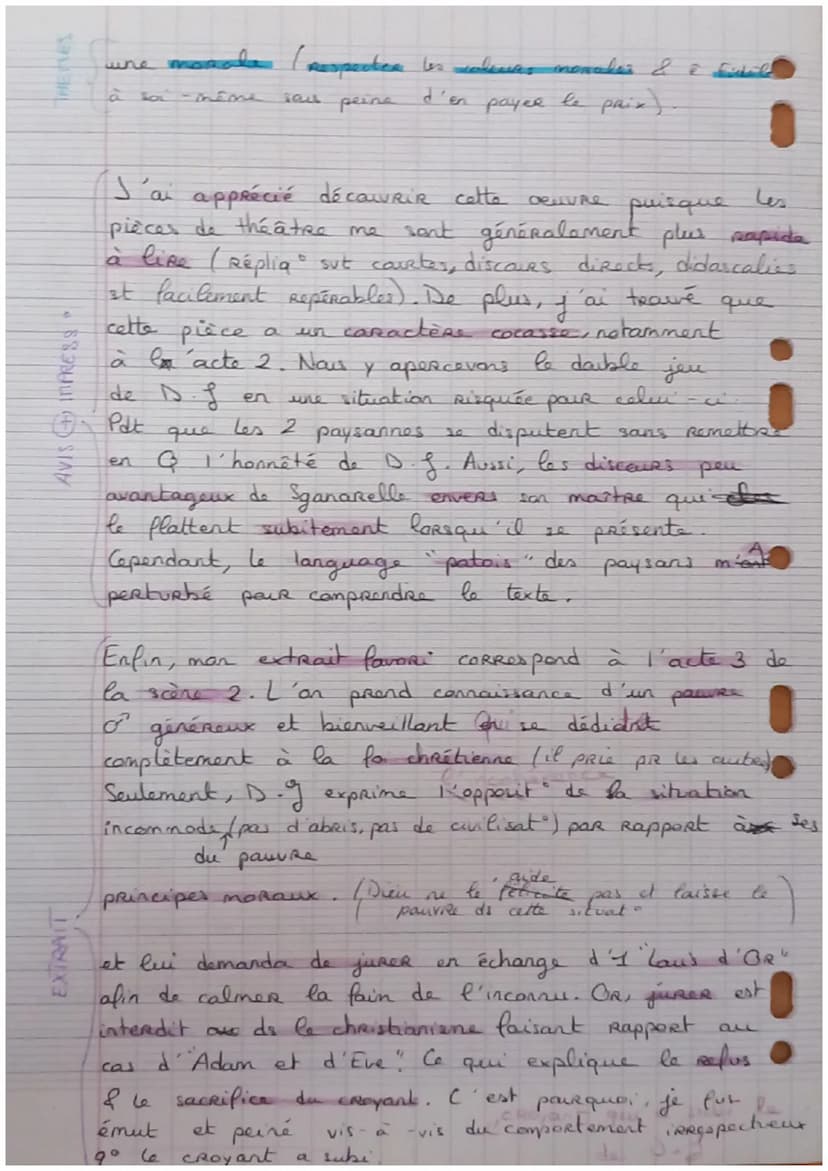 THEMES
une morale (respecter les valeurs morales & ê fidèle
à soi-même sous peine d'en payer le prix).
AVIS (+) IMPRESS°
J'ai appRécié découvRiR cette oeuvre puisque les
pièces de théâtre me sont généralement plus rapide
à liRe (Répliq° svt courtes, discours directs, didascalies
et facilement RepéRables). De plus, j'ai trouvé que
cette pièce a un caractère cocasse, notamment
à l'acte 2. Nous y apercevons le double jeu
de D.J en une situation Risquée pour celui-ci.
Pdt que les 2 paysannes se disputent sans Remettre
en Q l'honnêté de D.J. Aussi, les discours peu
avantageux de Sganarelle envers son maître qui
le flattent subitement lorsqu'il se présente.
Cependant, le language "patois" des paysans m'A
perturbé pour comprendre le texte.
EXTRAIT
Enfin, mon extrait favori correspond à l'acte 3 de
la scène 2. L'on prend connaissance d'un pauvre
♂ généreux et bienveillant qui se dédie
complètement à la foi chrétienne (il prie pr les autres)
Seulement, D.J exprime l'opposit° de la situation
incommode (pas d'abris, pas de civilisat°) par Rapport à ses
du pauvre
principes moraux. (Dieu ne l'aide pas et laisse le
pauvre ds cette situat°)
et lui demanda de jurer en échange d'1 "Louis d'OR"
afin de calmer la faim de l'inconnu. OR, jurer est
interdit ds le christianisme faisant Rapport au
cas d'"Adam et d'Eve". Ce qui explique le refus
& le sacrifice du croyant. C'est pourquoi, je fus
émut et peiné vis-à-vis du comportement irrespecheux
q° le croyant a subi.